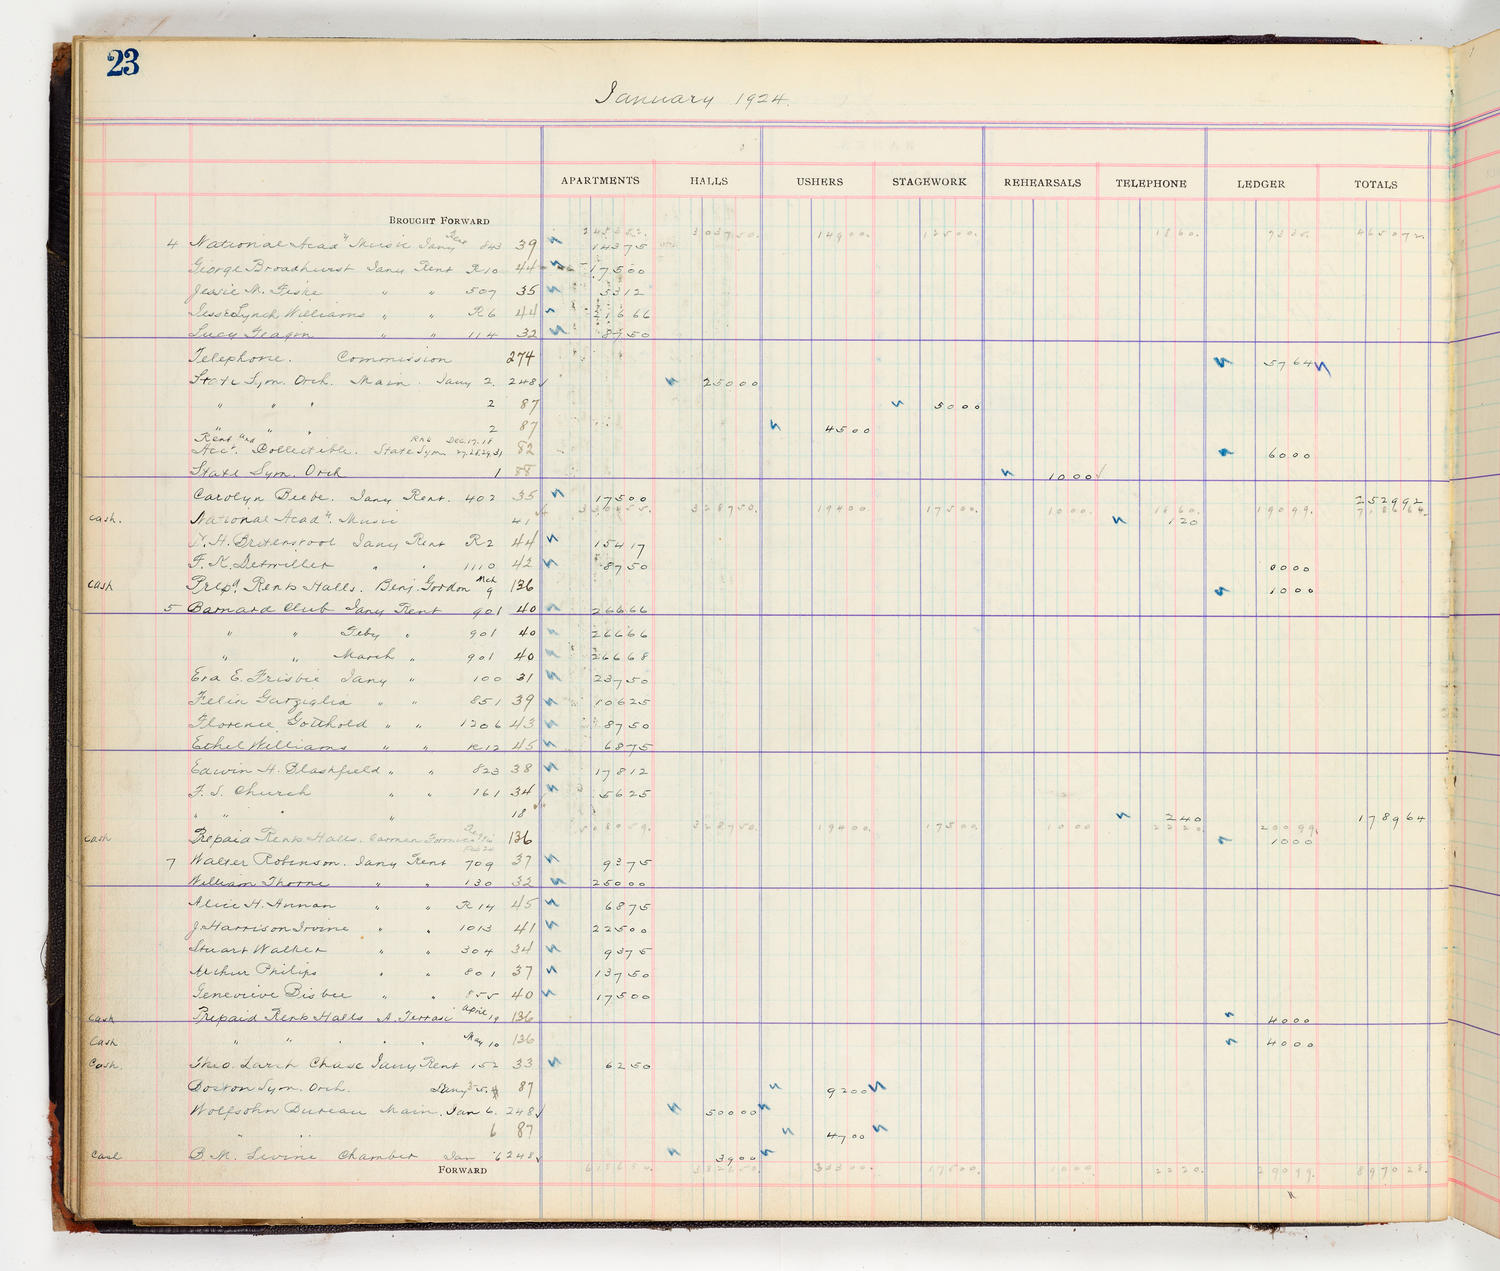 23
January 1924.
APARTMENTS HALLS USHERS STAGEWORK REHEARSALS TELEPHONE LEDGER TOTALS
BROUGHT FORWARD 303750. 14900. 12500. 1860.
4 National Acad'' Music Jany 843 39 14375
George Broadhurst Jany Rent R10 44 17500
Jessie M. Fiske " " 507 35 5312
Jesse Lynch Williams " " R6 44 21666
Lucy Feagin " " 114 32 8750
Telephone. Commission 274 5764
State Sym. Orch. Main. Jany 2. 248 25000
" " " 2 87 5000
" " " 2 87 4500
Rent and Rent Dec. 17. 18
Acc't. Collectible. State Sym. 27,28,29,31 82 6000
State Sym. Orch 1 88 1000
Carolyn Beebe. Jany Rent. 402 35 17500 252992
328750. 19400. 17500. 1000. 1860. 19099.
Cash. National Acad''. Music 41 120
N. H. Britenstool Jany Rent R2 44 15417
F. K. Detwiller " " 1110 42 8750 0000
Cash Prepd. Rent Halls. Benj. Gordon Mch 9 136 1000
5 Barnard Club Jany Rent 901 40 26666
" " Feby " 901 40 26666
" " March " 901 40 26668
Eva E. Frisbie Jany " 100 31 23750
Felix Garziglia " " 851 39 10625
Florence Gotthold " " 1206 43 8750
Ethel Williams " " R12 45 6875
Edwin H. Blashfield " " 823 38 17812
F. S. Church " " 161 34 5625
" " " " 18 240 178964
328750. 19400. 17500. 1000 2220. 20099.
Cash Prepaid Rent Halls. Carmen 136 1000
7 Walter Robinson. Jany Rent 709 37 9375
William Thorne " " 130 32 25000
Alice H. Annan " " R14 45 6875
J. Harrison Irvine " " 1013 41 22500
Stuart Walker " " 304 34 9375
Arthur Philips " " 801 37 13750
Genevieve Bisbee " " 855 40 17500
Cash Prepaid Rent Halls A. Terrasi April 19 136 4000
Cash " " " " May 10 136 4000
Cash. Theo. Larch Chase Jany Rent 152 33 6250
Boston Sym. Orch. Jany 87 9200
Wolfsohn Bureau Main. Jan 6. 248 50000
" " 6 87 4700
Cash B. M. Levine Chamber Jan 6 248 3900
FORWARD 33300. 17500. 1000. 2220. 29099. 897028.